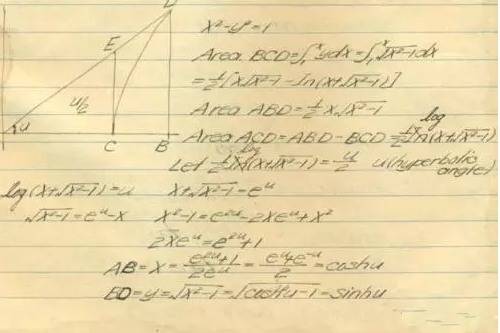 D
E
u/2
u
C B
x²-y²=1
Area BCD=∫₁ˣydx=∫₁ˣ√x²-1dx
=½[x√x²-1-ln(x+√x²-1)]
Area ABD=½x√x²-1
log
Area ACD=ABD-BCD=½ln(x+√x²-1)
log
Let ½ln(x+√x²-1)=u/2 u(hyperbolic angle)
log(x+√x²-1)=u x+√x²-1=eᵘ
√x²-1=eᵘ-x x²-1=e²ᵘ-2xeᵘ+x²
2xeᵘ=e²ᵘ+1
AB=x=(e²ᵘ+1)/2eᵘ=(eᵘ+e⁻ᵘ)/2=coshu
BD=y=√x²-1=√cosh²u-1=sinhu